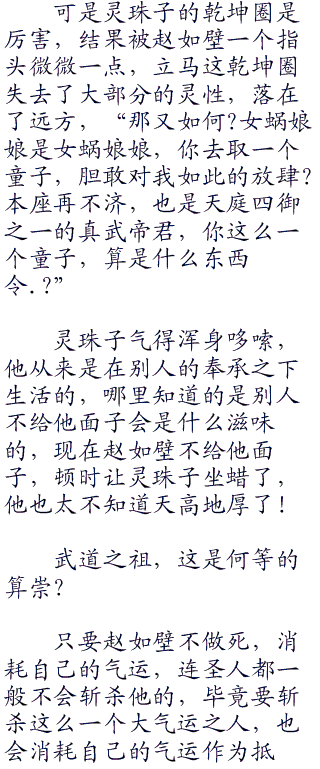 可是灵珠子的乾坤圈是
厉害，结果被赵如壁一个指
头微微一点，立马这乾坤圈
失去了大部分的灵性，落在
了远方，“那又如何?女蜗娘
娘是女蜗娘娘，你去取一个
童子，胆敢对我如此的放肆?
本座再不济，也是天庭四御
之一的真武帝君，你这么一
个童子，算是什么东西
令.?”
灵珠子气得浑身哆嗦，
他从来是在别人的奉承之下
生活的，哪里知道的是别人
不给他面子会是什么滋味
的，现在赵如壁不给他面
子，顿时让灵珠子坐蜡了，
他也太不知道天高地厚了!
武道之祖，这是何等的
算崇?
只要赵如壁不做死，消
耗自己的气运，连圣人都一
般不会斩杀他的，毕竟要斩
杀这么一个大气运之人，也
会消耗自己的气运作为抵